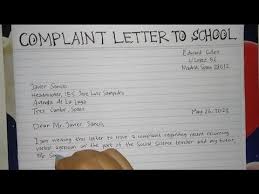 COMPLAINT LETTER TO SCHOOL
Edward Cullen
Madrid Spain 28012
Javier Sancis
Headmaster, IES Jose Luis Sampedro
Avenida de La Luga
Tres Cantos, Spain
May 26, 2023
Dear Mr. Javier Sancis,
I am writing this letter to have a complaint regarding recent recurring
verbal agression on the part of the Social Science teacher and my tutor,
Mr.